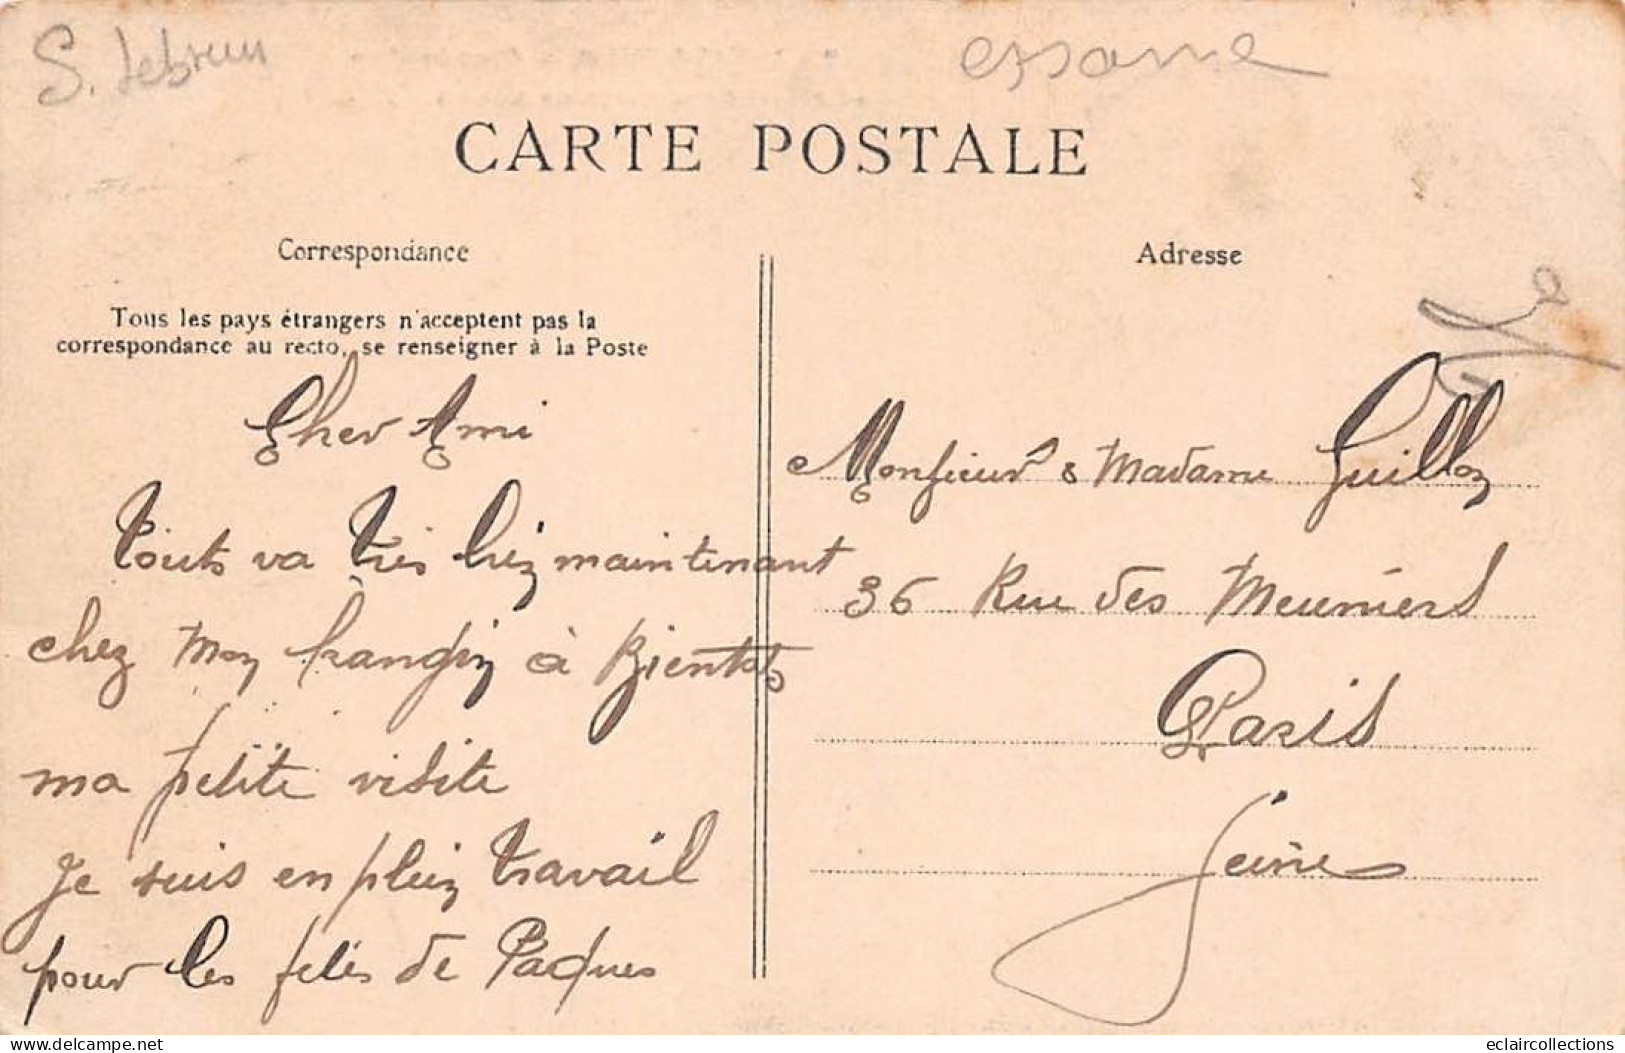 S. Lebrun
essonne
CARTE POSTALE
Correspondance
Adresse
Tous les pays étrangers n'acceptent pas la
correspondance au recto, se renseigner à la Poste
Cher Ami
Touts va très bien maintenant
chez mon frangin à Bientot
ma petite visite
Je suis en plein travail
pour les fetes de Paques
Monsieur & Madame Guillon
36 Rue des Meuniers
Paris
Seine
eclaircollections